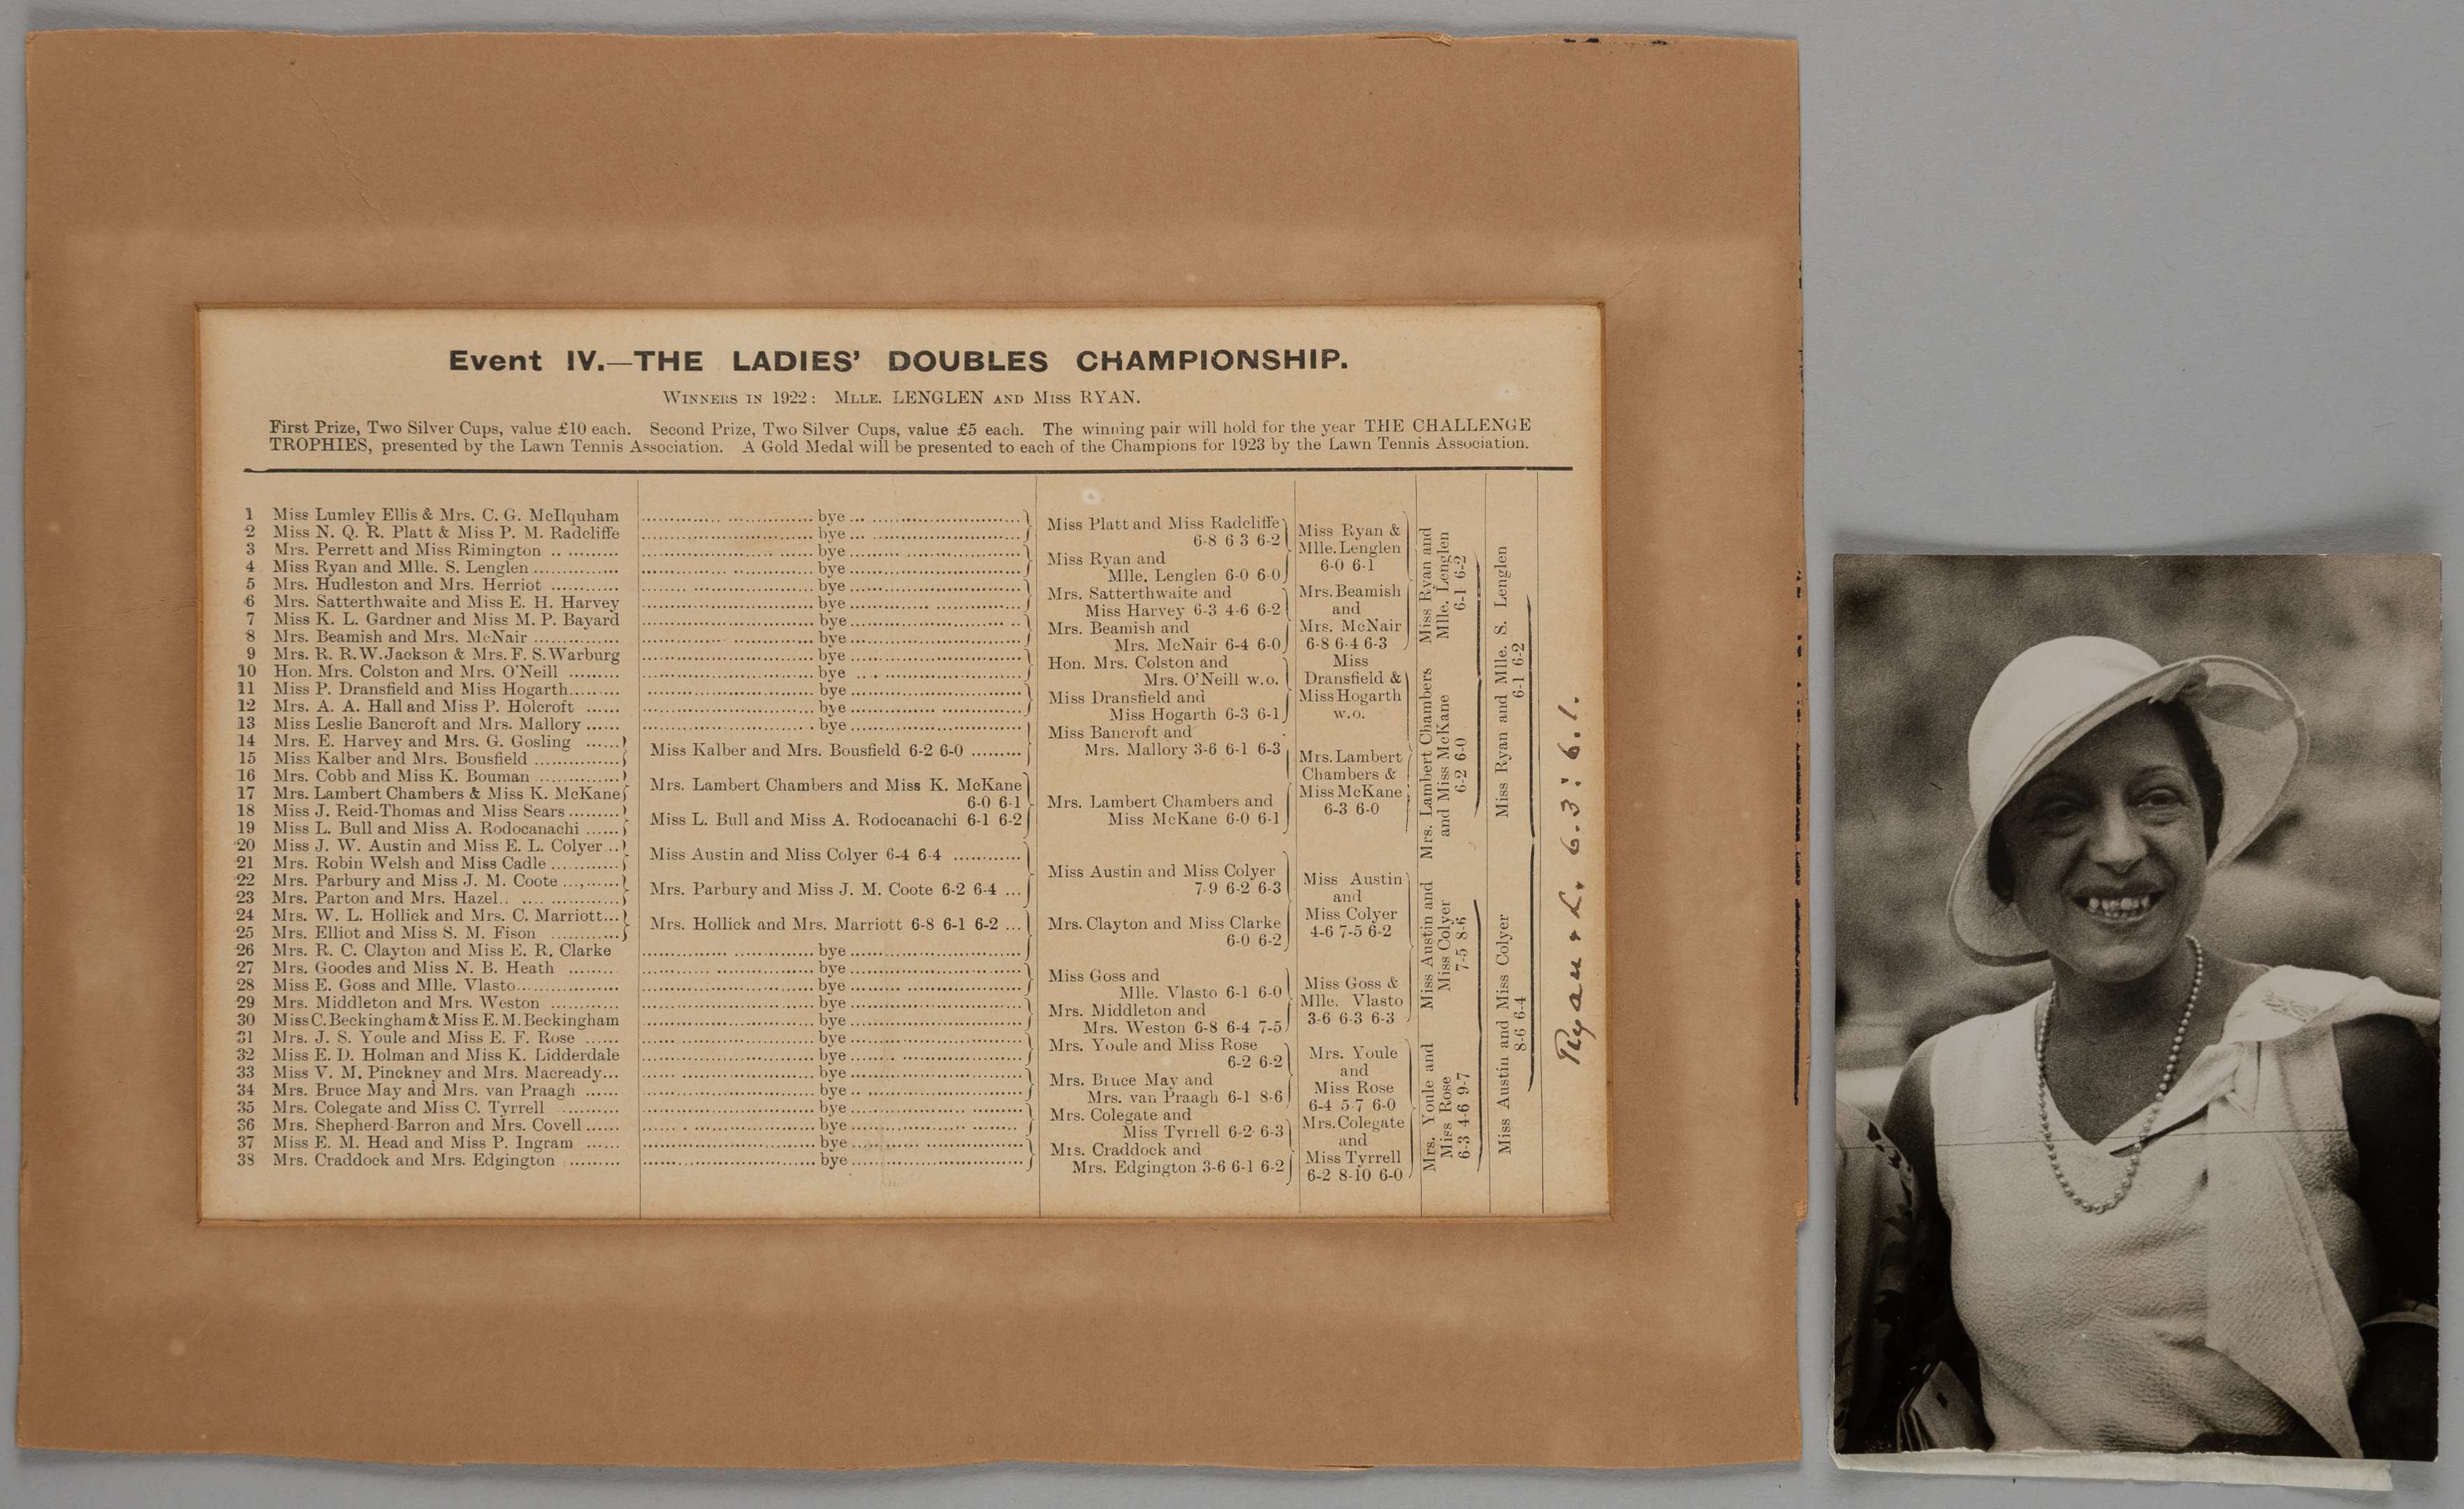 Event IV.—THE LADIES' DOUBLES CHAMPIONSHIP.
WINNERS IN 1922: MLLE. LENGLEN AND MISS RYAN.
First Prize, Two Silver Cups, value £10 each. Second Prize, Two Silver Cups, value £5 each. The winning pair will hold for the year THE CHALLENGE
TROPHIES, presented by the Lawn Tennis Association. A Gold Medal will be presented to each of the Champions for 1923 by the Lawn Tennis Association.
1 Miss Lumley Ellis & Mrs. C. G. McIlquham
2 Miss N. Q. R. Platt & Miss P. M. Radcliffe
3 Mrs. Perrett and Miss Rimington
4 Miss Ryan and Mlle. S. Lenglen
5 Mrs. Hudleston and Mrs. Herriot
6 Mrs. Satterthwaite and Miss E. H. Harvey
7 Miss K. L. Gardner and Miss M. P. Bayard
8 Mrs. Beamish and Mrs. McNair
9 Mrs. R. R. W. Jackson & Mrs. F. S. Warburg
10 Hon. Mrs. Colston and Mrs. O'Neill
11 Miss P. Dransfield and Miss Hogarth
12 Mrs. A. A. Hall and Miss P. Holcroft
13 Miss Leslie Bancroft and Mrs. Mallory
14 Mrs. E. Harvey and Mrs. G. Gosling
15 Miss Kalber and Mrs. Bousfield
16 Mrs. Cobb and Miss K. Bouman
17 Mrs. Lambert Chambers & Miss K. McKane
18 Miss J. Reid-Thomas and Miss Sears
19 Miss L. Bull and Miss A. Rodocanachi
20 Miss J. W. Austin and Miss E. L. Colyer
21 Mrs. Robin Welsh and Miss Cadle
22 Mrs. Parbury and Miss J. M. Coote
23 Mrs. Parton and Mrs. Hazel
24 Mrs. W. L. Hollick and Mrs. C. Marriott
25 Mrs. Elliot and Miss S. M. Fison
26 Mrs. R. C. Clayton and Miss E. R. Clarke
27 Mrs. Goodes and Miss N. B. Heath
28 Miss E. Goss and Mlle. Vlasto
29 Mrs. Middleton and Mrs. Weston
30 Miss C. Beckingham & Miss E. M. Beckingham
31 Mrs. J. S. Youle and Miss E. F. Rose
32 Miss E. D. Holman and Miss K. Lidderdale
33 Miss V. M. Pinckney and Mrs. Macready
34 Mrs. Bruce May and Mrs. van Praagh
35 Mrs. Colegate and Miss C. Tyrrell
36 Mrs. Shepherd-Barron and Mrs. Covell
37 Miss E. M. Head and Miss P. Ingram
38 Mrs. Craddock and Mrs. Edgington
bye
bye
bye
bye
bye
bye
bye
bye
bye
bye
bye
bye
bye
Miss Kalber and Mrs. Bousfield 6-2 6-0
Mrs. Lambert Chambers and Miss K. McKane
6-0 6-1
Miss L. Bull and Miss A. Rodocanachi 6-1 6-2
Miss Austin and Miss Colyer 6-4 6-4
Mrs. Parbury and Miss J. M. Coote 6-2 6-4
Mrs. Hollick and Mrs. Marriott 6-8 6-1 6-2
bye
bye
bye
bye
bye
bye
bye
bye
bye
bye
bye
bye
bye
Miss Platt and Miss Radcliffe
6-8 6 3 6-2
Miss Ryan and
Mlle. Lenglen 6-0 6-0
Mrs. Satterthwaite and
Miss Harvey 6-3 4-6 6-2
Mrs. Beamish and
Mrs. McNair 6-4 6-0
Hon. Mrs. Colston and
Mrs. O'Neill w.o.
Miss Dransfield and
Miss Hogarth 6-3 6-1
Miss Bancroft and
Mrs. Mallory 3-6 6-1 6-3
Mrs. Lambert Chambers and
Miss McKane 6-0 6-1
Miss Austin and Miss Colyer
7-9 6-2 6-3
Mrs. Clayton and Miss Clarke
6-0 6-2
Miss Goss and
Mlle. Vlasto 6-1 6-0
Mrs. Middleton and
Mrs. Weston 6-8 6-4 7-5
Mrs. Youle and Miss Rose
6-2 6-2
Mrs. Bruce May and
Mrs. van Praagh 6-1 8-6
Mrs. Colegate and
Miss Tyrrell 6-2 6-3
Mrs. Craddock and
Mrs. Edgington 3-6 6-1 6-2
Miss Ryan &
Mlle. Lenglen
6-0 6-1
Mrs. Beamish
and
Mrs. McNair
6-8 6-4 6-3
Miss
Dransfield &
Miss Hogarth
w.o.
Mrs. Lambert
Chambers &
Miss McKane
6-3 6-0
Miss Austin
and
Miss Colyer
4-6 7-5 6-2
Miss Goss &
Mlle. Vlasto
3-6 6-3 6-3
Mrs. Youle
and
Miss Rose
6-4 5-7 6-0
Mrs. Colegate
and
Miss Tyrrell
6-2 8-10 6-0
Miss Ryan and
Mlle. Lenglen
6-1 6-2
Mrs. Lambert Chambers
and Miss McKane
6-2 6-0
Miss Austin and
Miss Colyer
7-5 8-6
Mrs. Youle and
Miss Rose
6-3 4-6 9-7
Miss Ryan and Mlle. S. Lenglen
6-1 6-2
Miss Austin and Miss Colyer
8-6 6-4
Ryan & L. 6.3: 6.1.